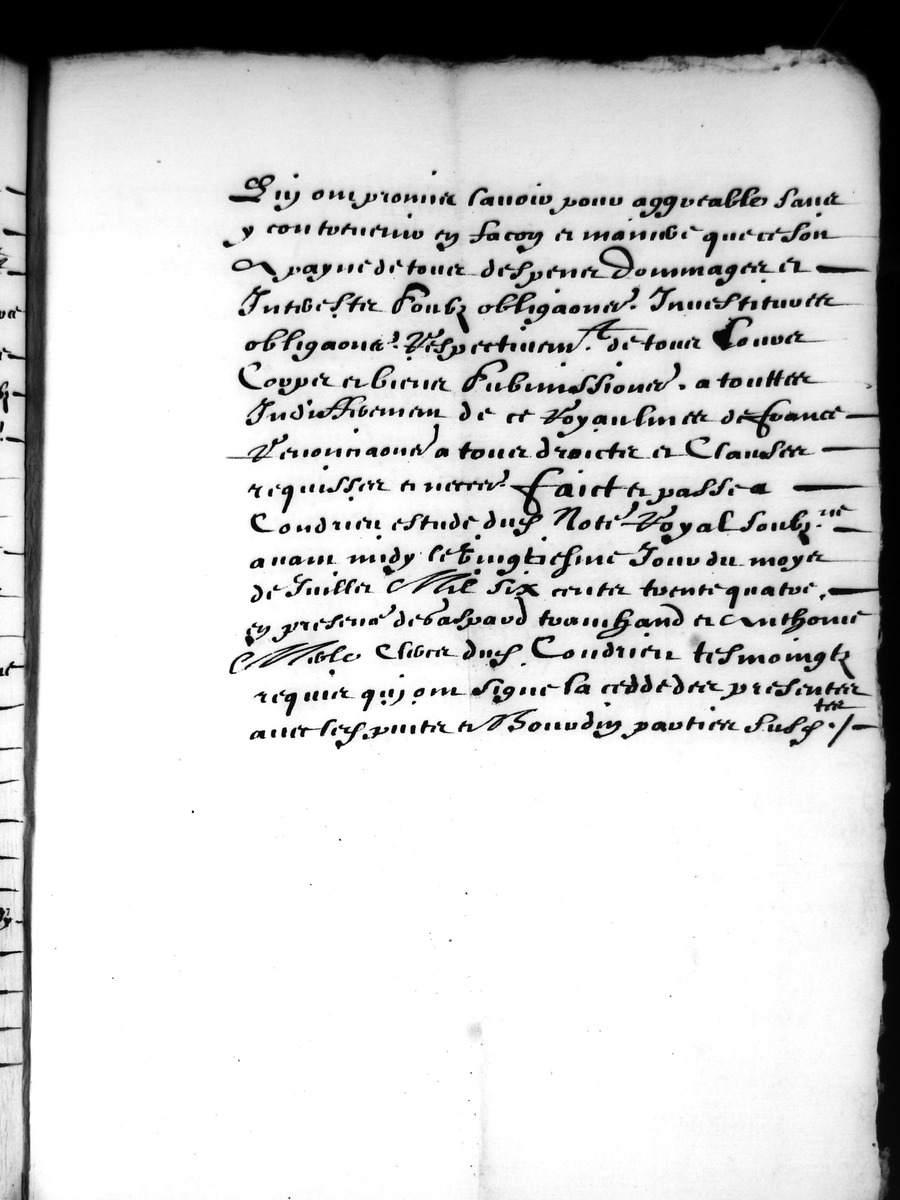 Qui ont promis lavoir pour aggreable sans
y contrevenir en facon et maniere que ce soit
A payne de tous despens dommages et
Interestz soubz obligaons Investitures
obligaons Respectivemt de tous Leurs
Corps et biens submissions a touttes
Jurisdi de ce Royaulmes de france
Renonciaons a tous droicts et Clauses
requisses et necers faict et passe a
Condrieu estude dud Note Royal soubz.ne
avant midy le vingtiesme Jour du moys
de Juillet Mil six cents trente quatre
en presence de Gaspard tranchand et Anthonie
Clerc dud Condrieu tesmoingtz
requis qui ont signe la cedde des presentes
avec lesd et Bourdin parties susd.tes